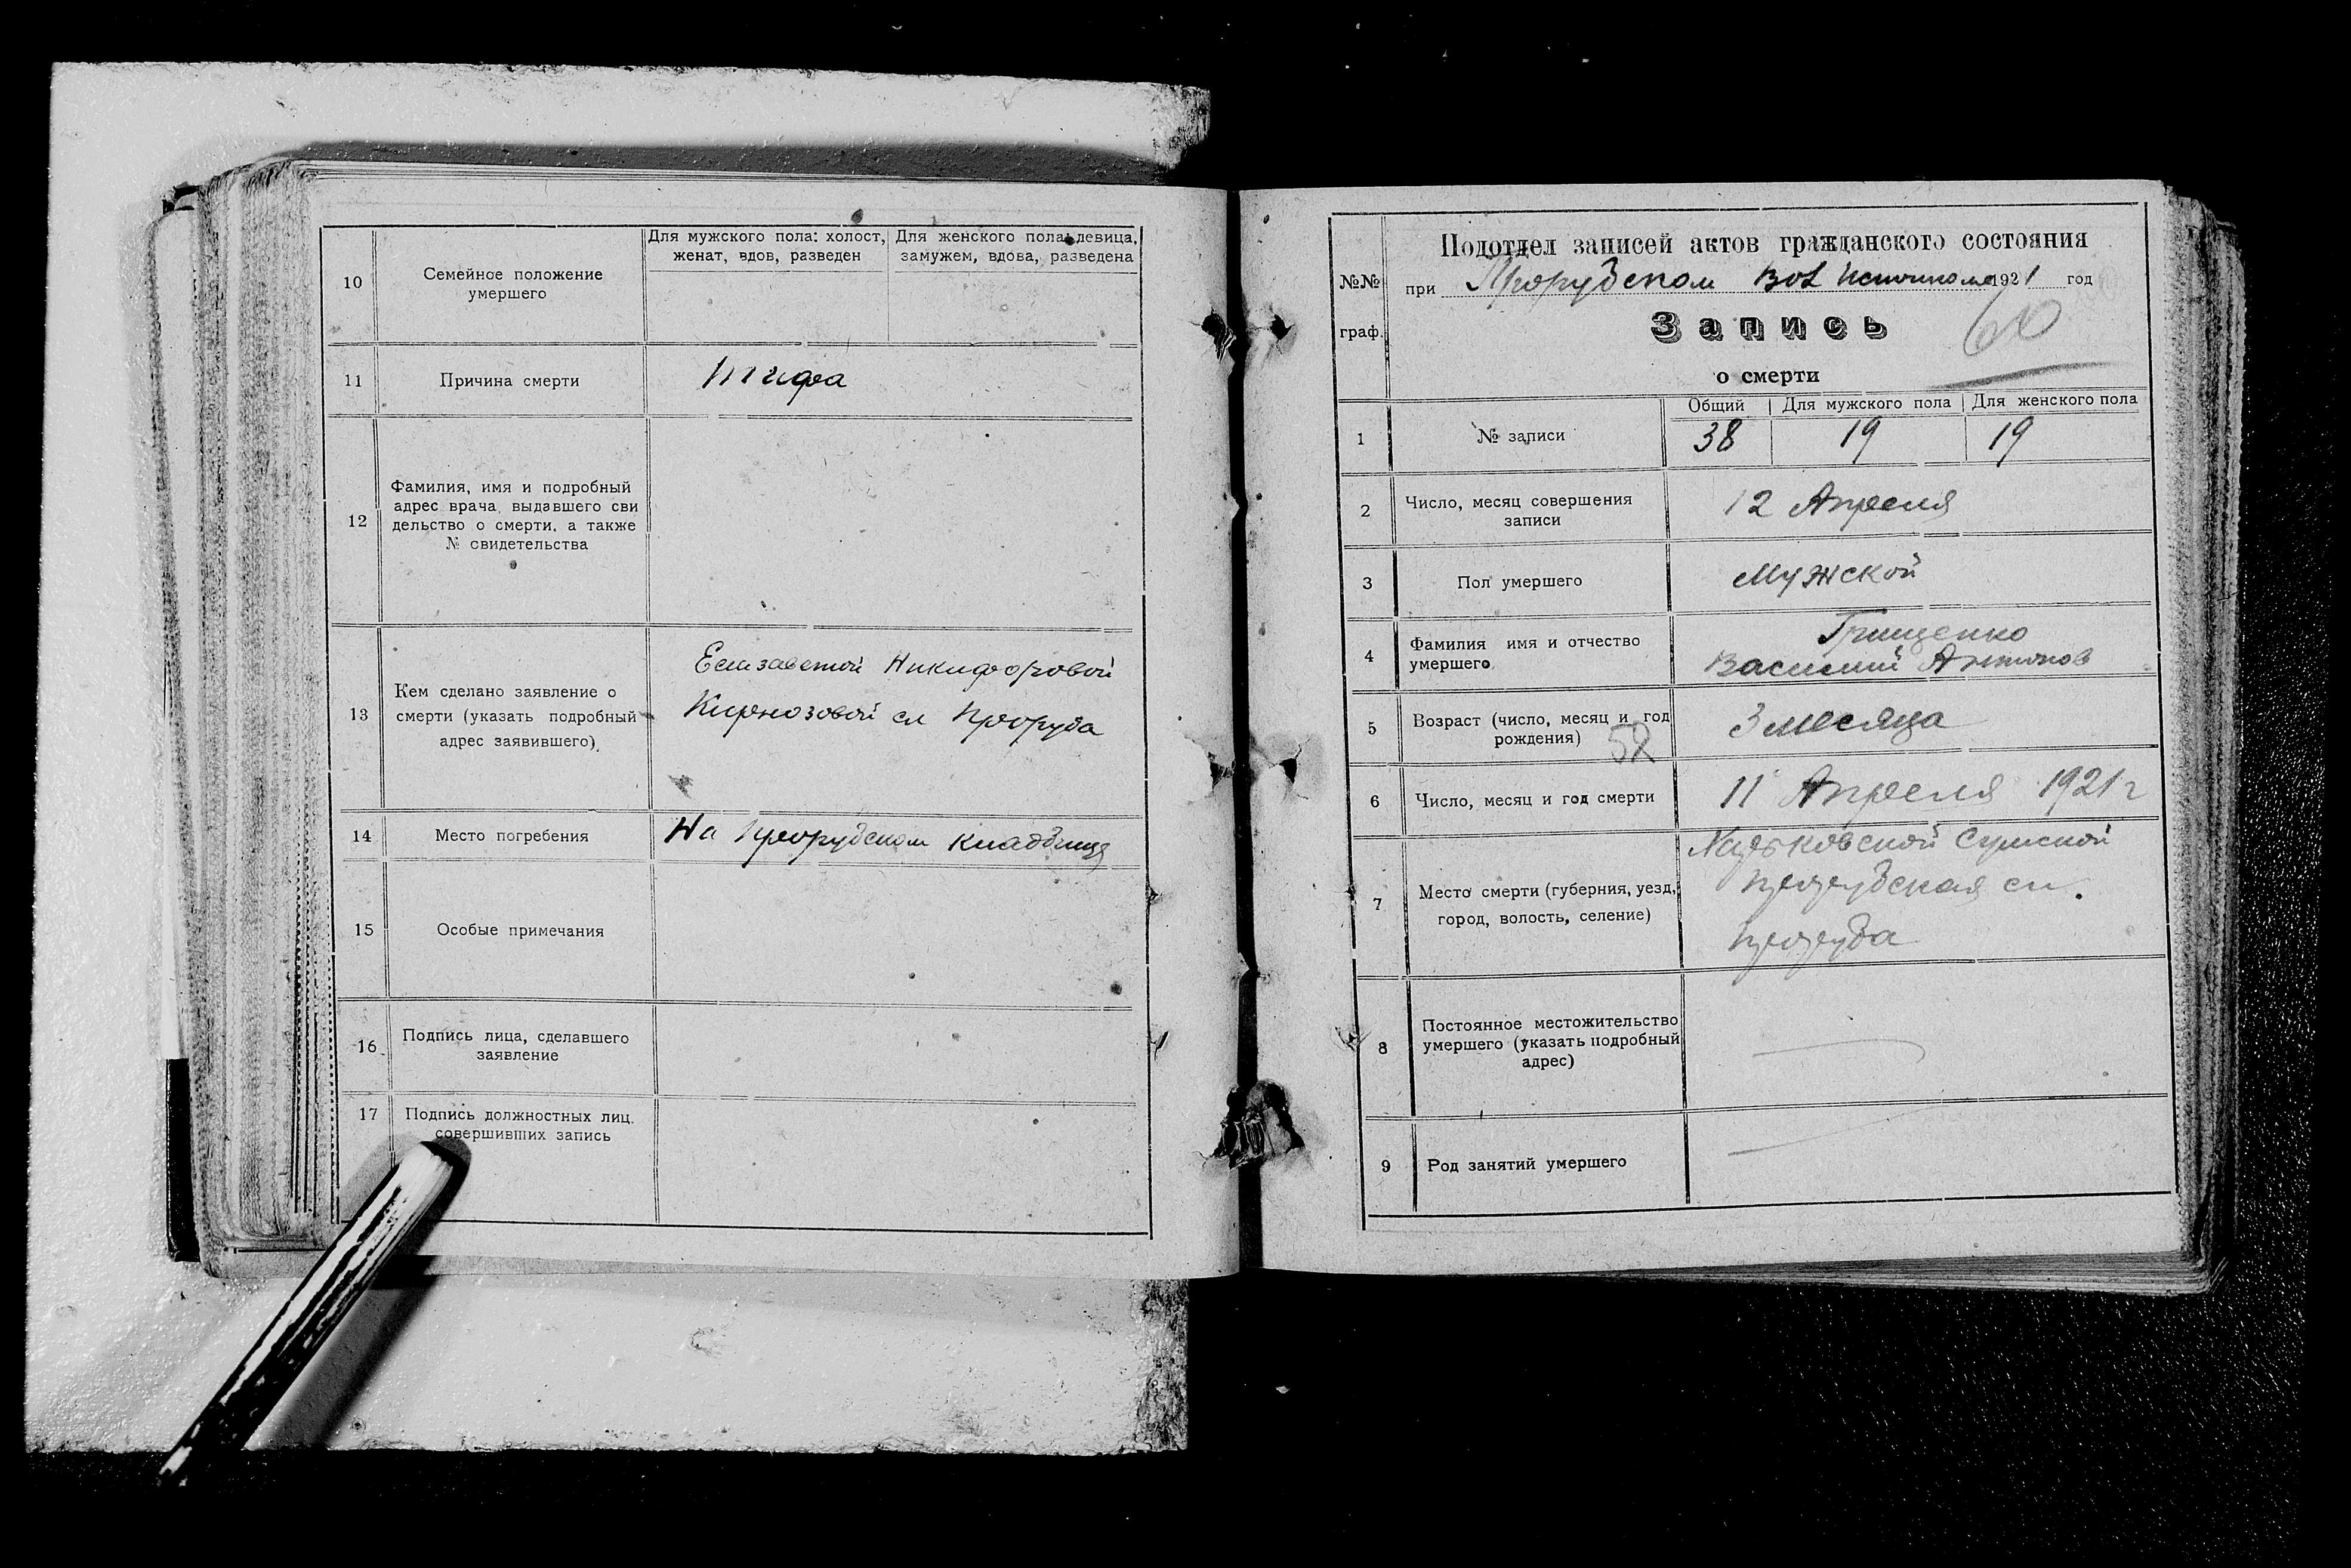 10
Семейное положение
умершего
Для мужского пола: холост,
женат, вдов, разведен
Для женского пола: девица,
замужем, вдова, разведена
11
Причина смерти
тифа
12
Фамилия, имя и подробный
адрес врача, выдавшего сви
дельство о смерти, а также
№ свидетельства
13
Кем сделано заявление о
смерти (указать подробный
адрес заявившего)
Елизаветой Никифоровой
Кирнозовой сл Проруба
14
Место погребения
На Прорубском кладбище
15
Особые примечания
16
Подпись лица, сделавшего
заявление
17
Подпись должностных лиц,
совершивших запись
№№
граф.
Подотдел записей актов гражданского состояния
при Прорубском Вол Исполкоме 1921 год
Запись
60
о смерти
Общий Для мужского пола Для женского пола
1
№ записи
38 19 19
2
Число, месяц совершения
записи
12 Апреля
3
Пол умершего
Мужской
4
Фамилия имя и отчество
умершего
Грищенко
Василий Антонов
5
Возраст (число, месяц и год
рождения)
52
3 месяца
6
Число, месяц и год смерти
11 Апреля 1921 г
7
Место смерти (губерния, уезд,
город, волость, селение)
Харьковской Сумской
Прорубская сл.
Проруба
8
Постоянное местожительство
умершего (указать подробный
адрес)
9
Род занятий умершего